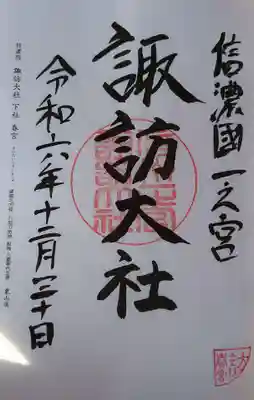 信濃國一之宮
諏訪大社
令和六年十二月三十日
諏訪大社 下社 春宮